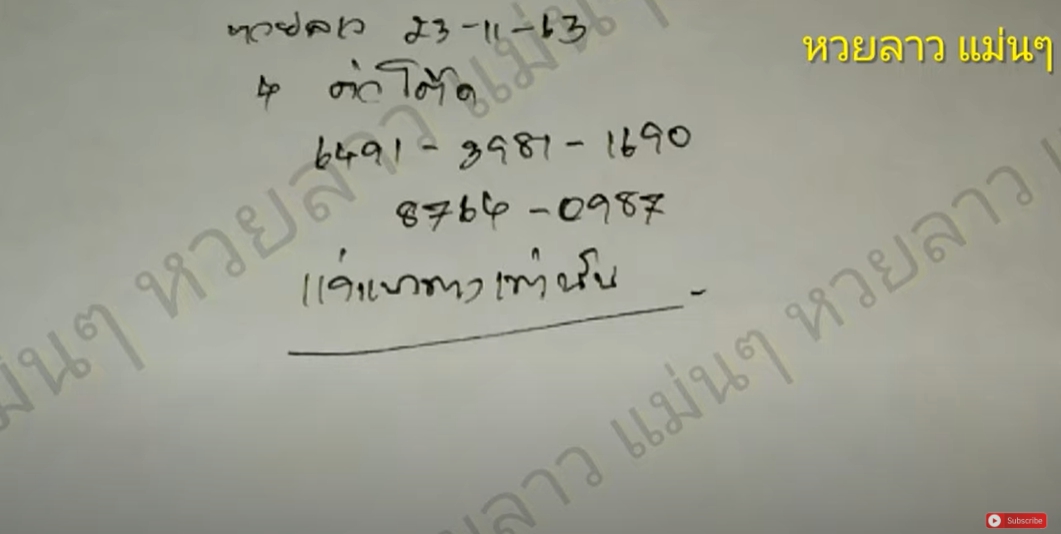 หวยลาว 23-11-63
หวยลาว แม่นๆ
4 ตัวโต๊ด
6491 - 3981 - 1690
8764 - 0987
แค่แนวทางเท่านั้น -
หวยลาว แม่นๆ
แม่นๆ หวยลาว แม่นๆ
หวยลาว แม่นๆ หวยลาว
Subscribe